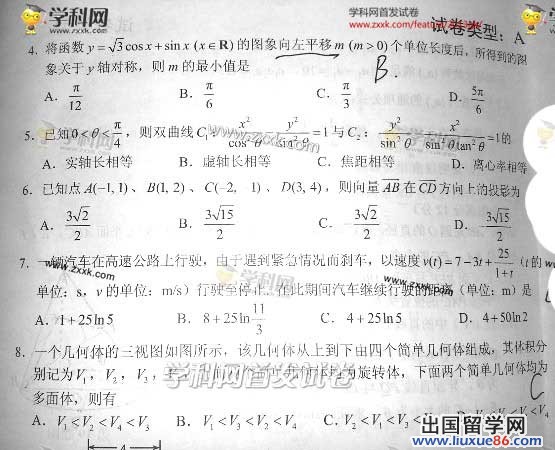 学科网 学科网首发试卷
www.zxxk.com
www.zxxk.com/feature/
试卷类型:A
4. 将函数 y = √3 cos x + sin x (x ∈ R) 的图象向左平移 m (m > 0) 个单位长度后,所得到的图
象关于 y 轴对称,则 m 的最小值是
B.
A. π/12 B. π/6 C. π/3 D. 5π/6
5. 已知 0 < θ < π/4,则双曲线 C₁: x²/cos²θ - y²/sin²θ = 1 与 C₂: y²/sin²θ - x²/sin²θ tan²θ = 1 的
A. 实轴长相等 B. 虚轴长相等 C. 焦距相等 D. 离心率相等
6. 已知点 A(-1, 1)、B(1, 2)、C(-2, 1)、D(3, 4),则向量 AB 在 CD 方向上的投影为
A. 3√2/2 B. 3√15/2 C. -3√2/2 D. -3√15/2
7. 一辆汽车在高速公路上行驶,由于遇到紧急情况而刹车,以速度 v(t) = 7 - 3t + 25/1+t (t 的
单位:s, v 的单位:m/s) 行驶至停止. 在此期间汽车继续行驶的距离(单位:m)是
A. 1 + 25 ln 5 B. 8 + 25 ln 11/3 C. 4 + 25 ln 5 D. 4 + 50 ln 2
8. 一个几何体的三视图如图所示,该几何体从上到下由四个简单几何体组成,其体积分
别记为 V₁, V₂, V₃, 简单几何体均为旋转体,下面两个简单几何体均为
学科网首发试卷
多面体,则有
C
A. V₁ < V₂ < V₄ < V₃ B. V₁ < V₃ < V₂ < V₄ C. V₂ < V₁ < V₃ < V
4
出国留学网
www.liuxue86.com